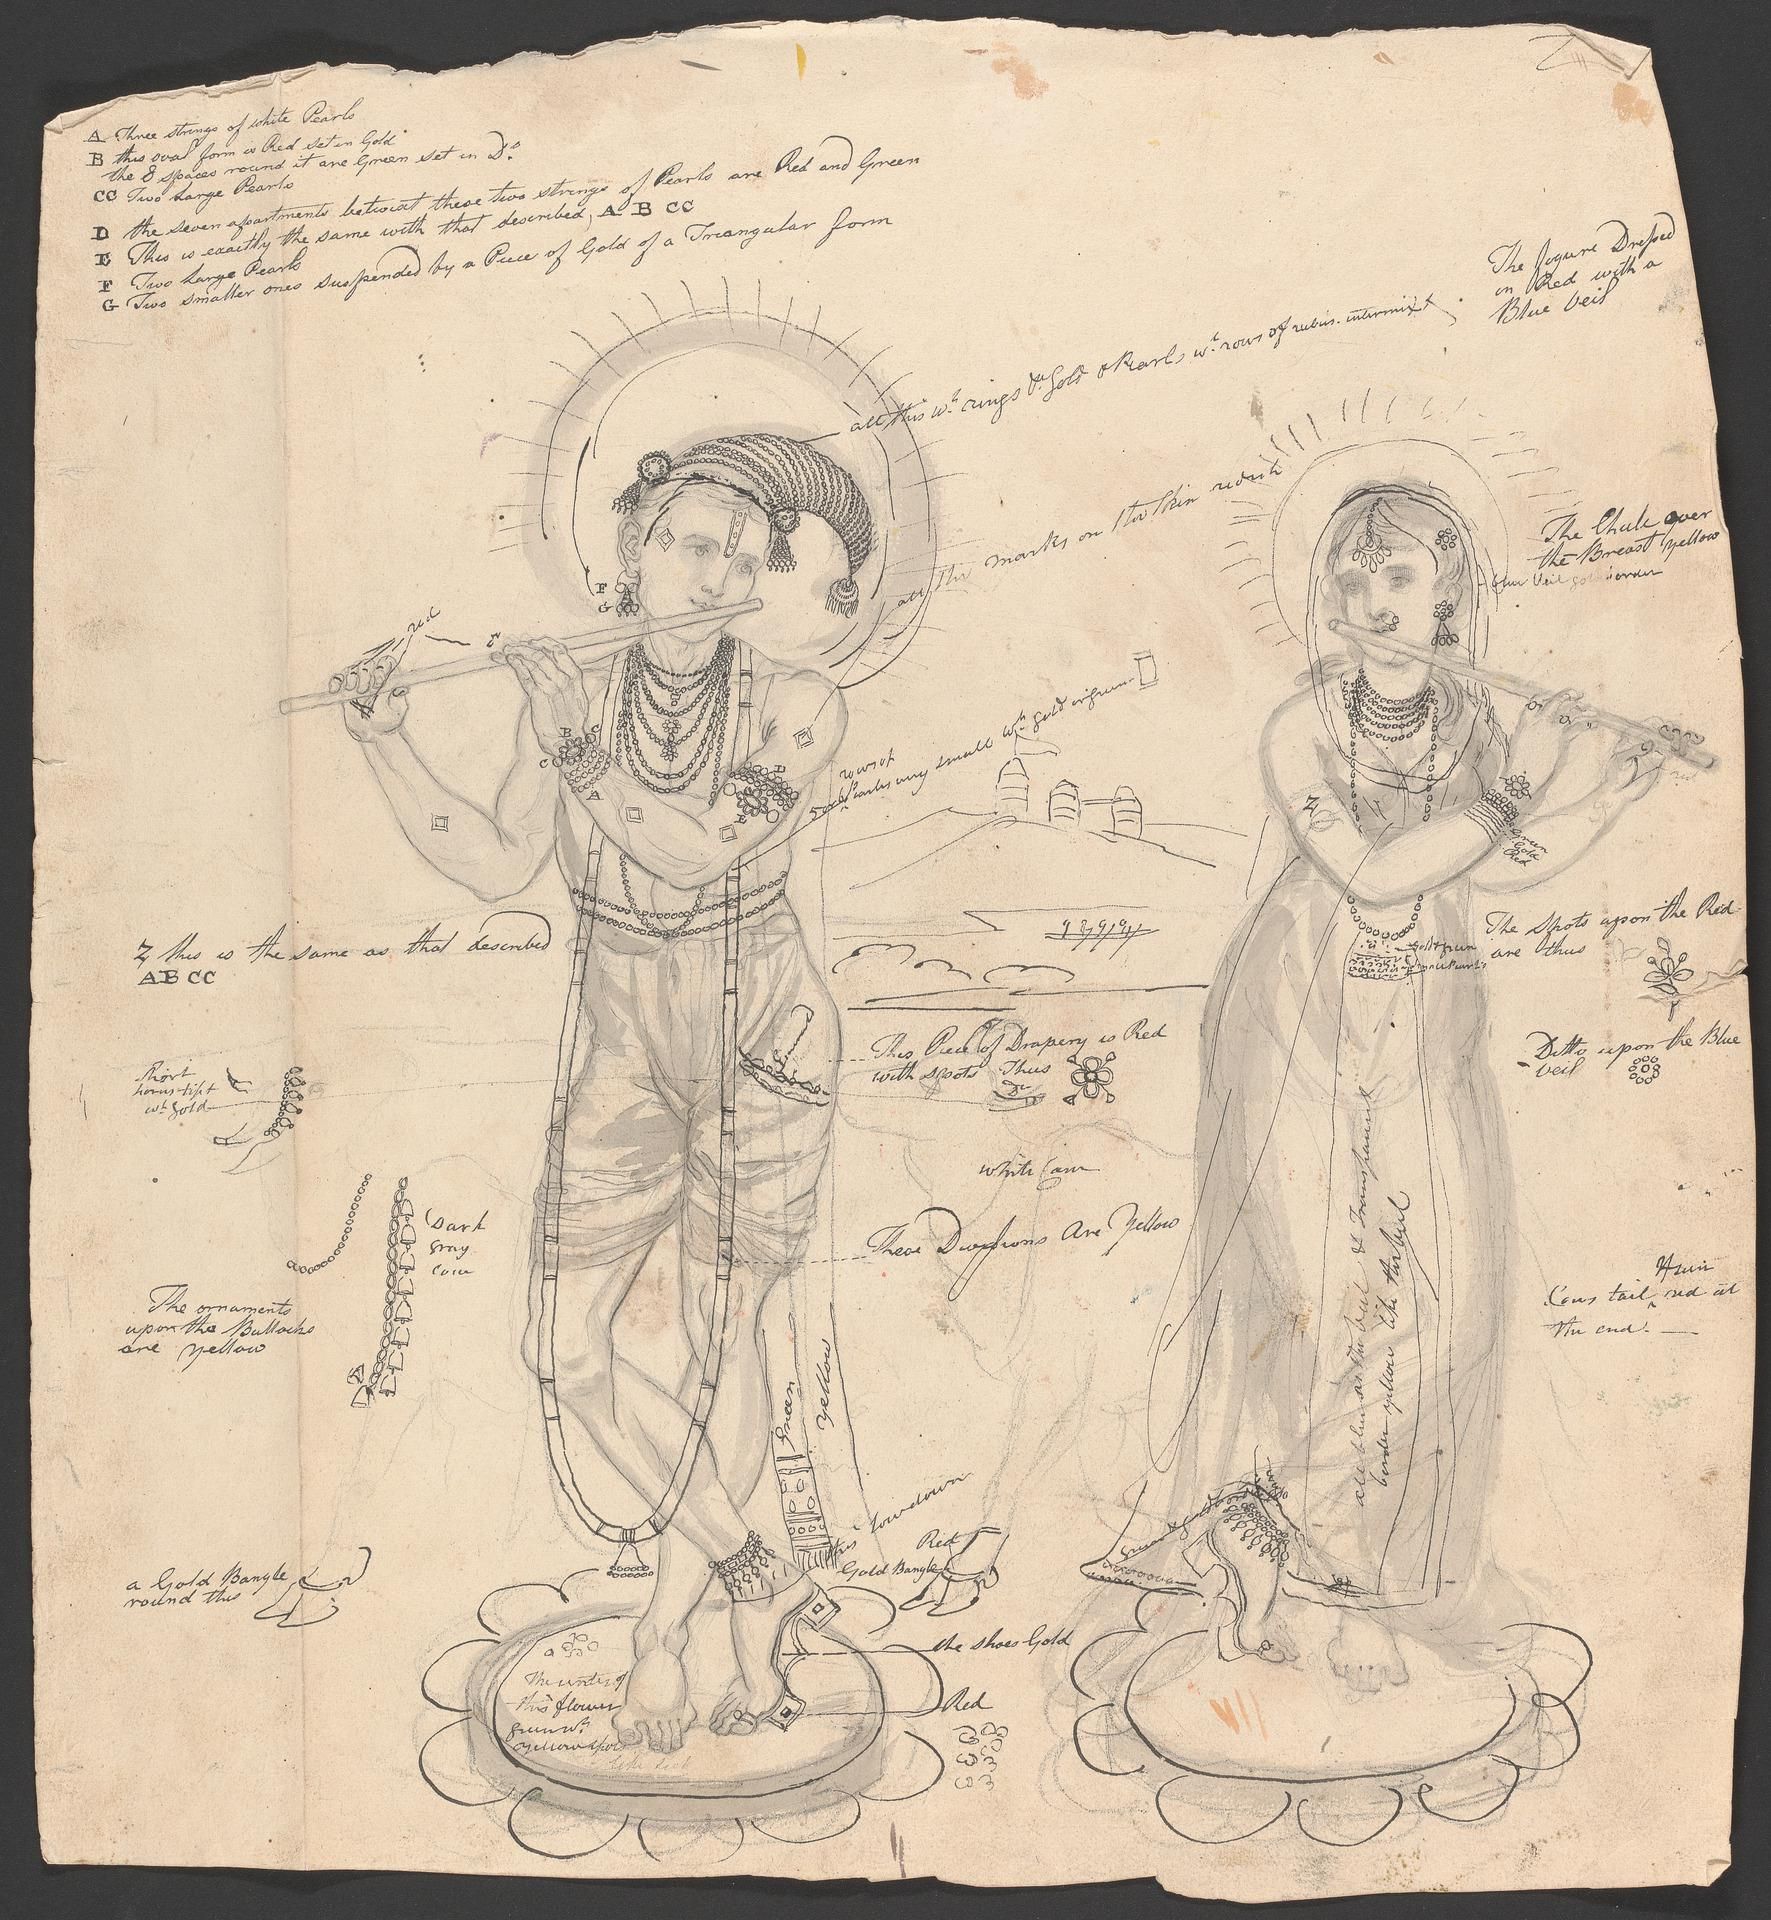 A Three strings of white Pearls
B this oval form is Red set in Gold
the 8 spaces round it are Green set in Do.
CC Two Large Pearls
D the seven apartments betwixt these two strings of Pearls are Red and Green
E This is exactly the same with that described, A B CC
F Two Large Pearls
G Two smaller ones suspended by a Piece of Gold of a Triangular form
The figure Dressed
in Red with a
Blue Veil
all this wh. rings of gold & Pearls wh. rows of rubies intermixt
all the marks on the skin redish
The Shale over
the Breast yellow
blue Veil gold border
red
F
G
E
B
C
C
A
D
E
rows of
5 Pearls very small wh. gold
Z
Green
Gold
Red
red
Z this is the same as that described
AB CC
The Spots upon the Red
are thus
gold & green
small Pearls
Ditto upon the Blue
Veil
Short
horns tipt
wh. gold
This Piece of Drapery is Red
with spots Thus
white Cow
These Divisions Are Yellow
Dark
Gray
Cow
The ornaments
upon the Bullocks
are yellow
Cows tail red at
the end.
all blue as the veil & Transparent
border yellow like the veil
Green
yellow
this low down
Red
Gold Bangle
a Gold Bangle
round this
the shoes Gold
Red
The center of
this flower
green wh.
yellow spots